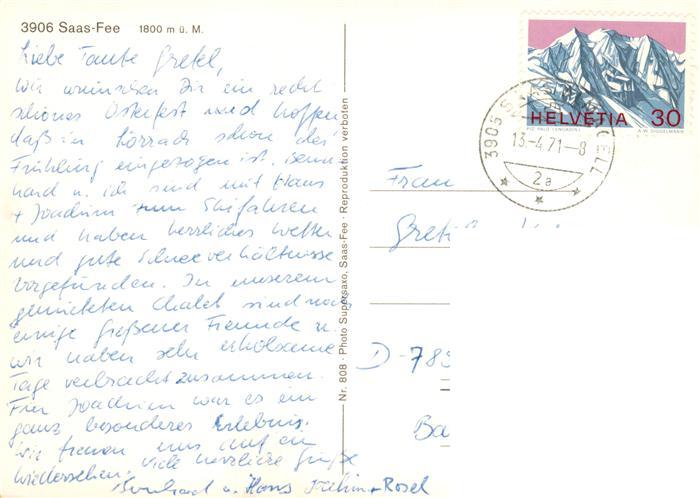 3906 Saas-Fee 1800 m ü. M.
Liebe Tante Gretel,
wir wünschen Dir ein recht
schönes Osterfest und hoffen,
daß in Lörrach schon der
Frühling eingezogen ist. Bern-
hard u. ich sind mit Hans
+ Joachim zum Skifahren
und haben herrliches Wetter
und gute Schneeverhältnisse
vorgefunden. In unserem
gemieteten Chalet sind noch
einige Freunde u.
wir haben sehr erholsame
Tage verbracht zusammen.
Für Joachim war es ein
ganz besonderes Erlebnis.
Wir freuen uns auf ein
Wiedersehen. Viele herzliche Grüße
Bernhard u. Hans + Rosel
Nr. 808 · Photo Supersaxo, Saas-Fee · Reproduktion verboten
HELVETIA 30
PIZ PALÜ (ENGADIN) A.W. DIGGELMANN
3905
13.-4.71-8
2a
Frau
D-785
Ba